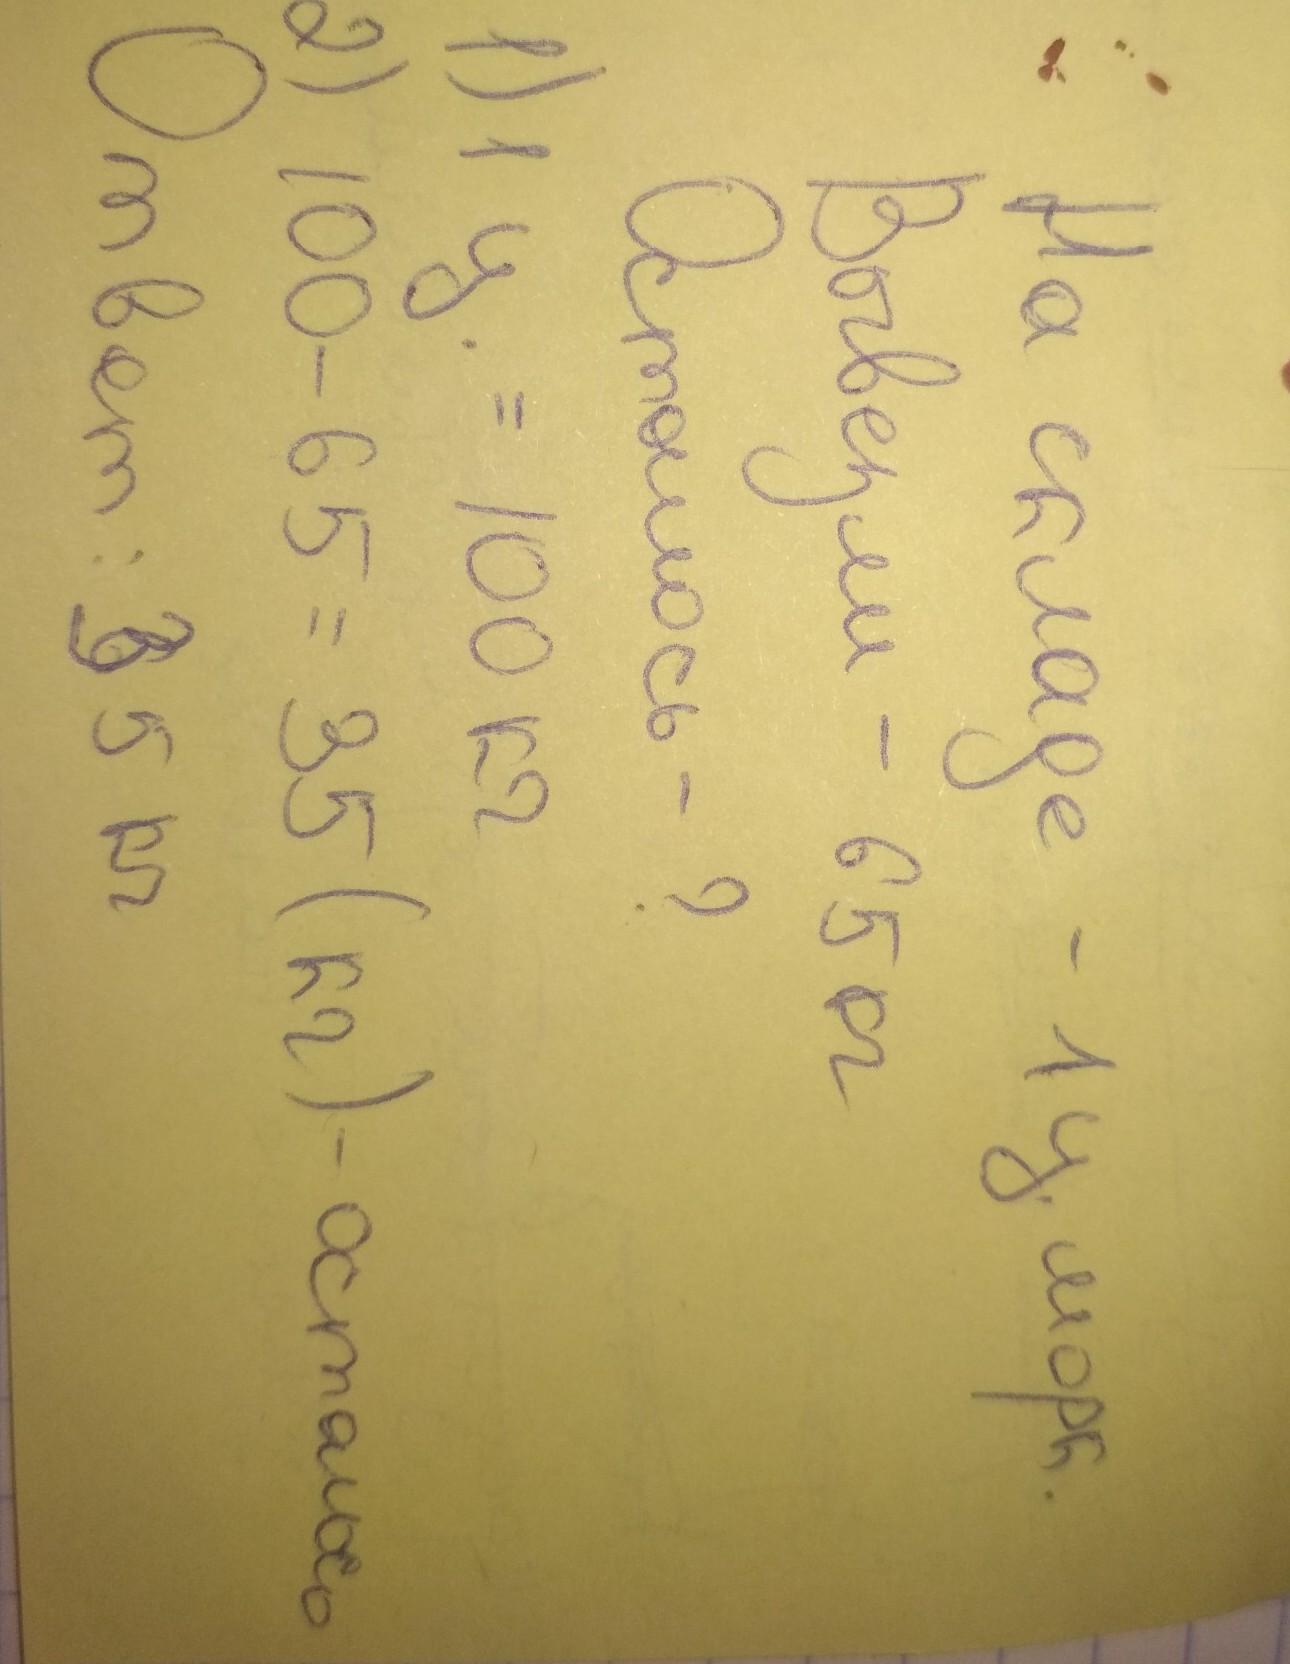 На складе - 1 ц. морк.
Вывезли - 65 кг
Осталось - ?
1) 1 ц. = 100 кг
2) 100 - 65 = 35 (кг) - осталось
Ответ: 35 кг